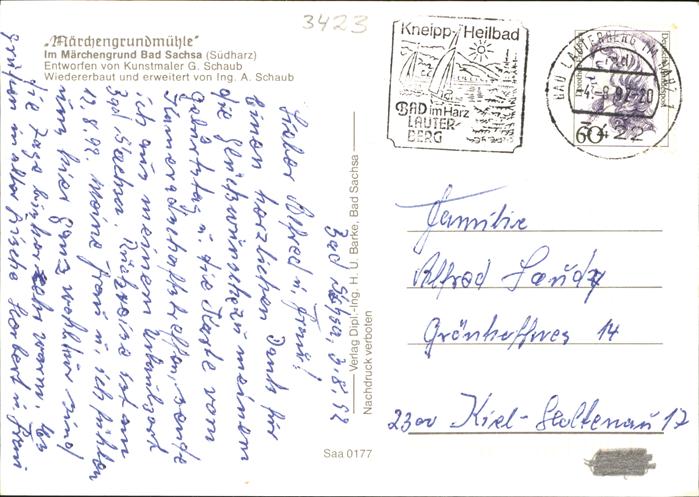 3423
"Märchengrundmühle"
Im Märchengrund Bad Sachsa (Südharz)
Entworfen von Kunstmaler G. Schaub
Wiedererbaut und erweitert von Ing. A. Schaub
Kneipp-Heilbad
BAD im Harz
LAUTER-
BERG
BAD LAUTERBERG IM HARZ 1
-4.-8.92-20
3422
60
Deutsche Bundespost
Bad Sachsa, 3.8.92
Lieber Alfred u. Frau!
Einen herzlichen Dank für
die Glückwünsche zu meinem
Geburtstag u. die Karte vom
Kameradschaftstreffen, sende
ich aus meinem Urlaubsort
Bad Sachsa. Rückreise ist am
12.8.92. Meine Frau u. ich fühlen
uns hier ganz wohl, wir sind
die Tage bisher sehr warm. Es
grüßen in alter Frische Herbert u. Frau
Verlag Dipl.-Ing. H. U. Barke, Bad Sachsa
Nachdruck verboten
Saa 0177
Familie
Alfred
14
2300 Kiel-Holtenau 17